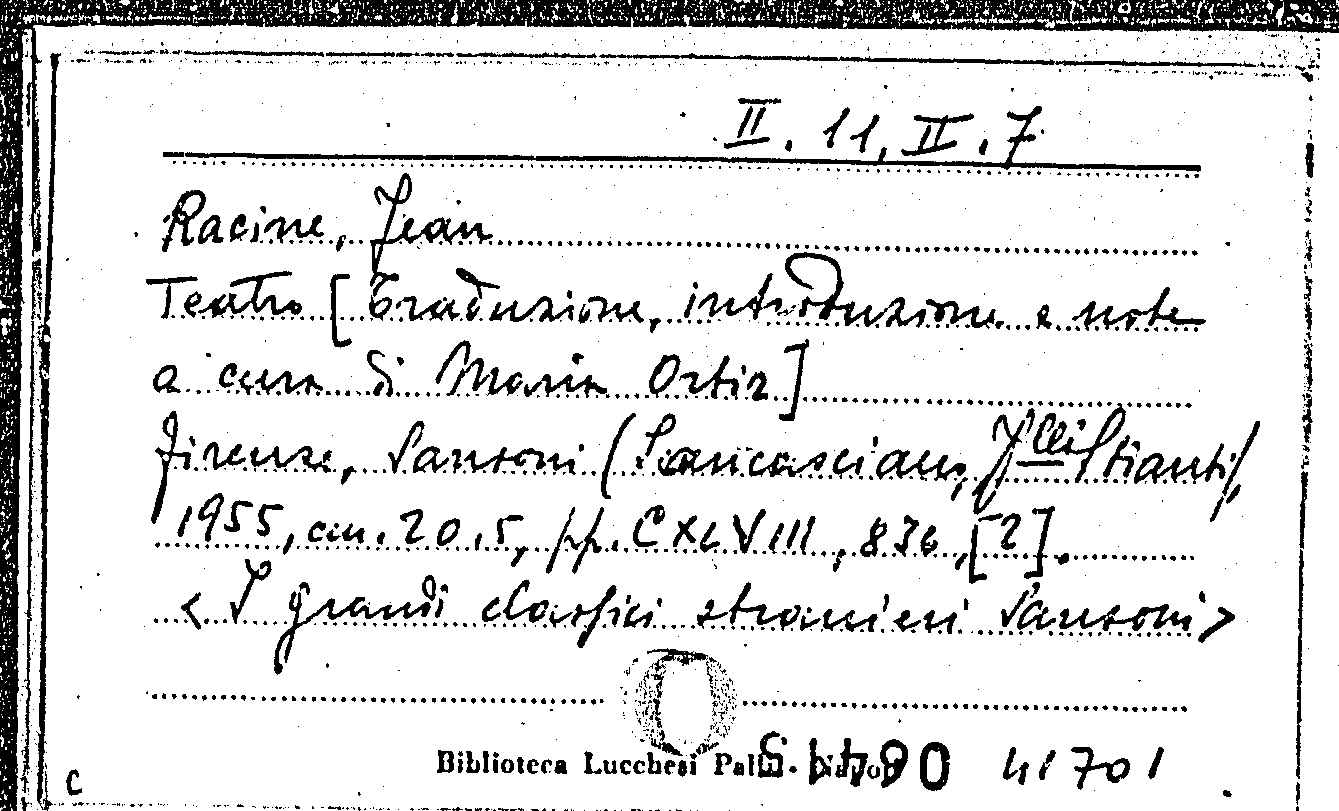 II. 11, II. 7
Racine, Jean
Teatro [Traduzione, introduzione e note
a cura di Maria Ortiz]
Firenze, Sansoni (Sancasciano, F.lli Stianti),
1955, cm. 20.5, pp. CXLVIII, 836, [2].
< I grandi classici stranieri Sansoni >
Biblioteca Lucchesi 41701
C